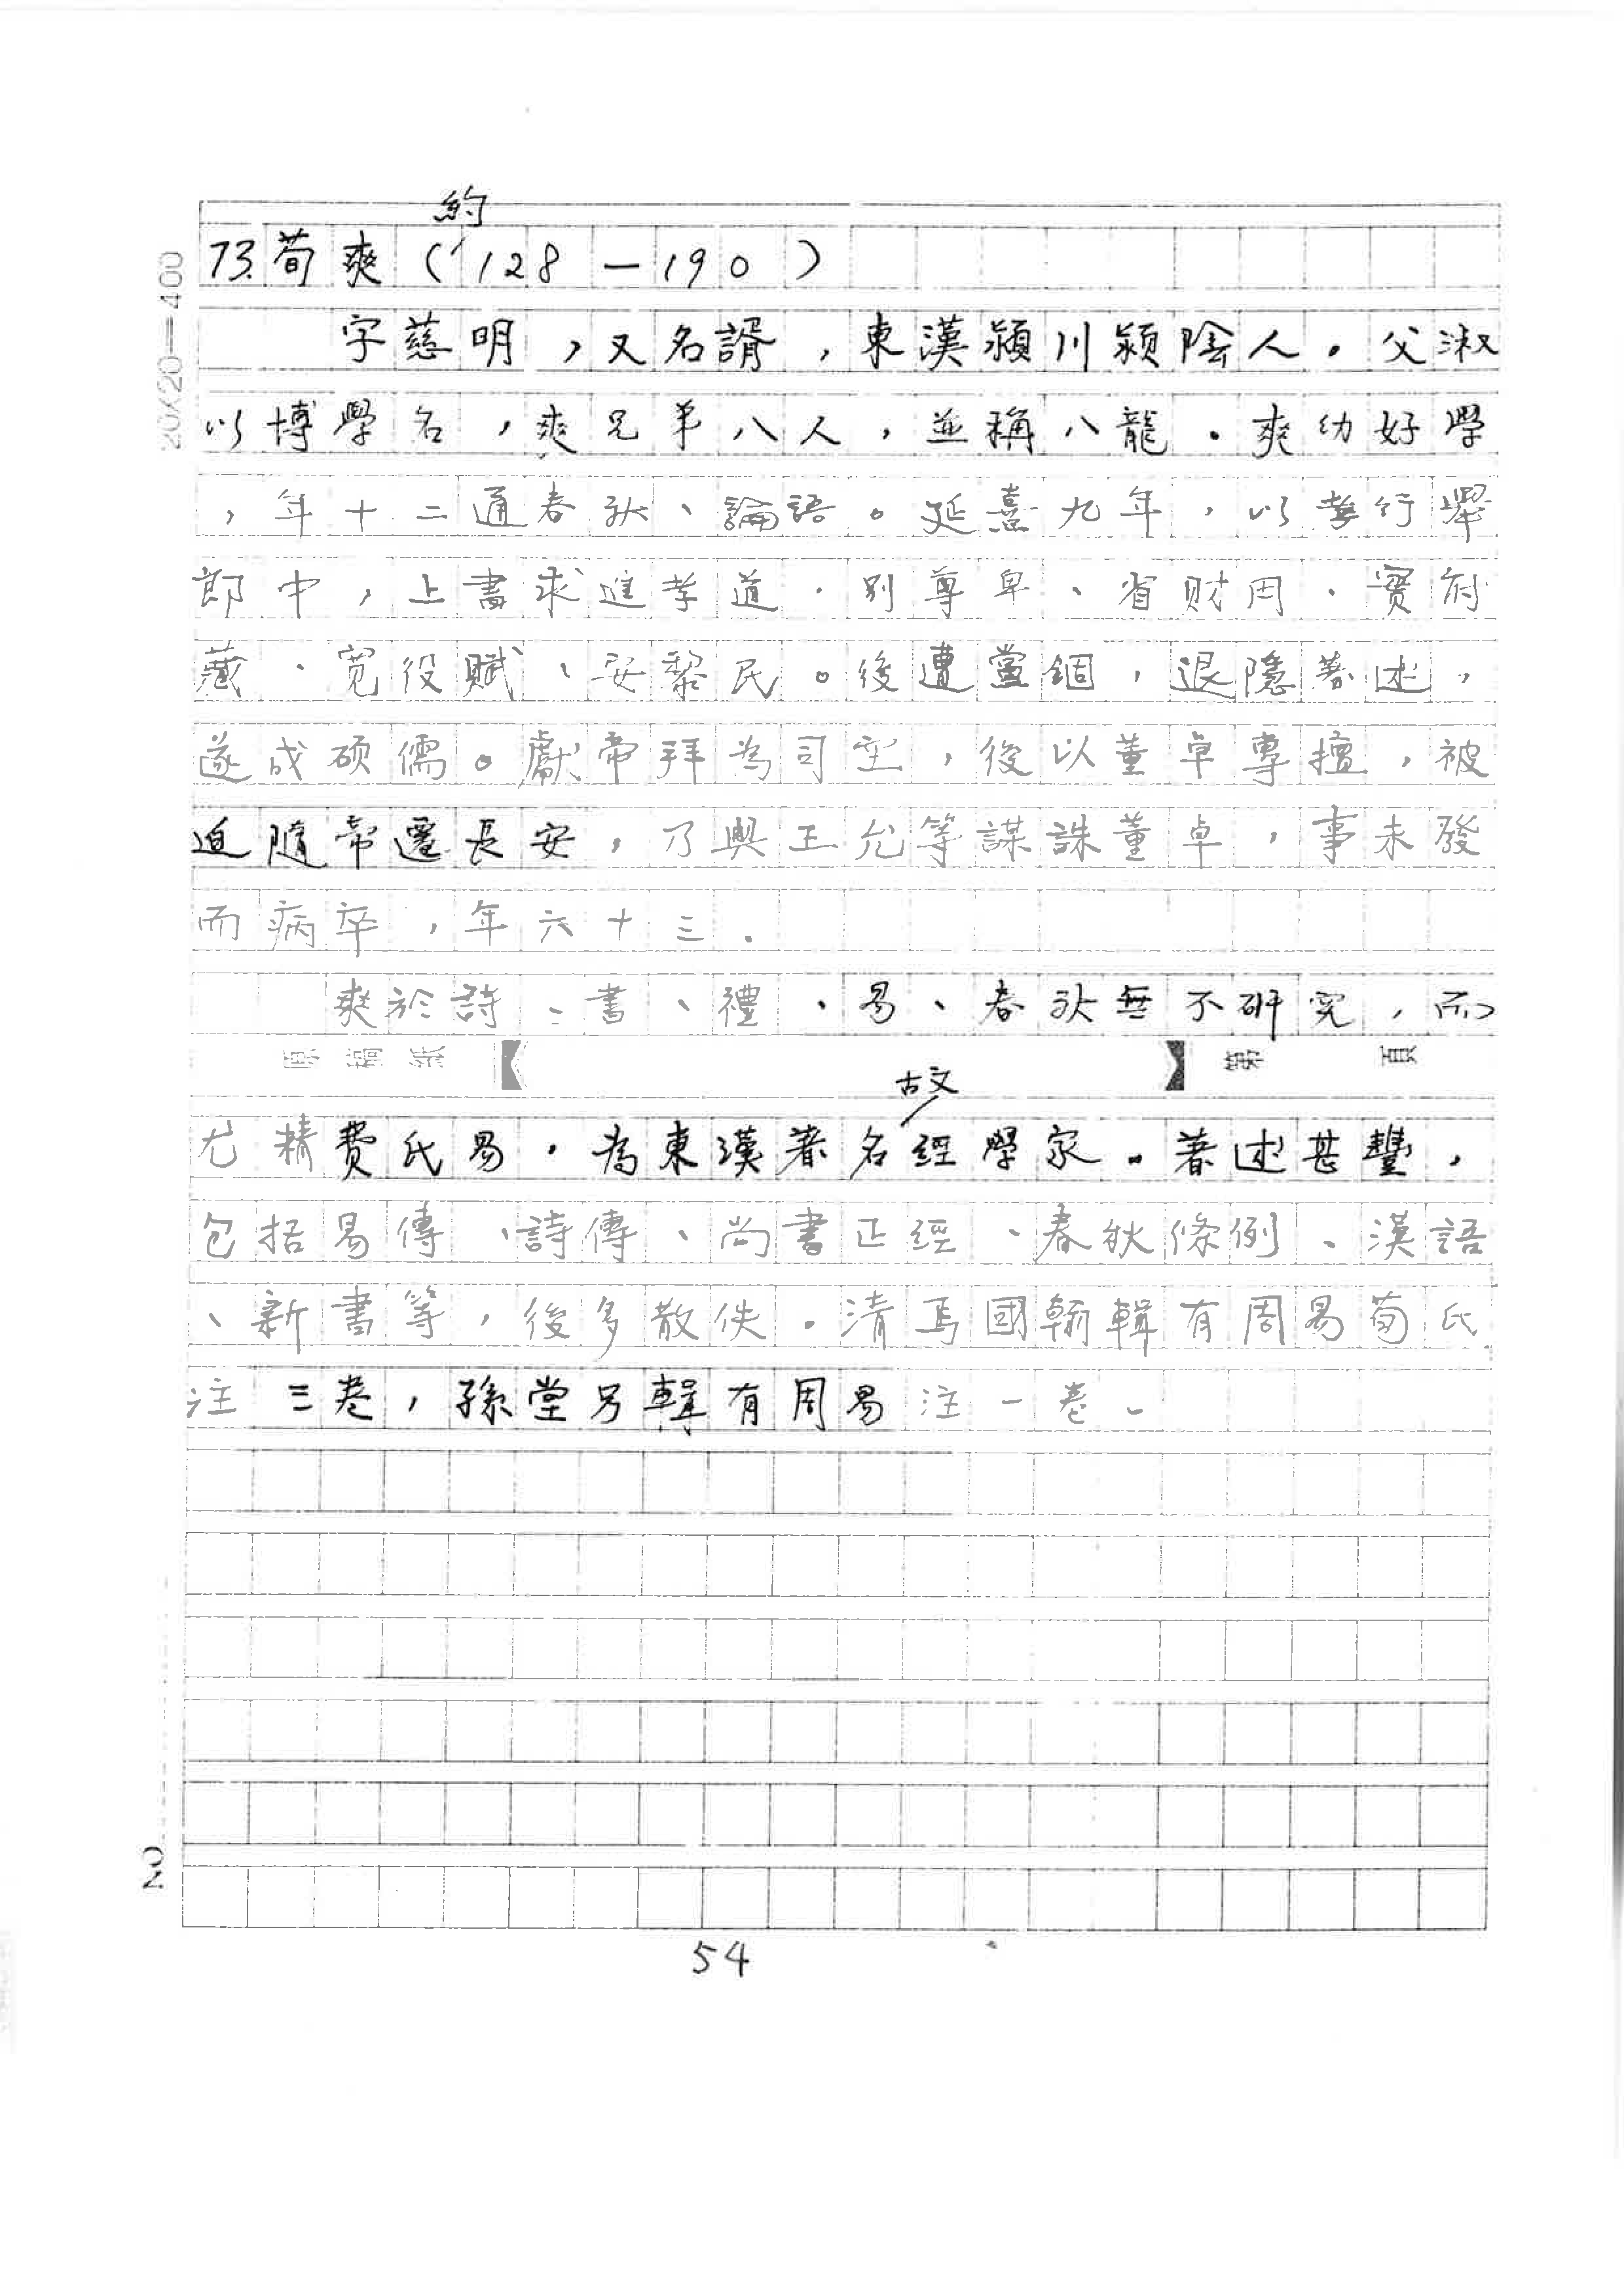 約
73.荀爽(128—190)
字慈明,又名諝,東漢潁川潁陰人。父淑
以博學名,爽兄弟八人,並稱八龍。爽幼好學
,年十二通春秋、論語。延熹九年,以孝行舉
郎中,上書求進孝道、別尊卑、省財用、實府
藏、寬役賦、安黎民。後遭黨錮,退隱著述,
遂成碩儒。獻帝拜為司空,後以董卓專擅,被
迫隨帝遷長安,乃與王允等謀誅董卓,事未發
而病卒,年六十三.
爽於詩、書、禮、易、春秋無不研究,而
原稿紙 第 頁
古文
尤精費氏易,為東漢著名經學家。著述甚豐,
包括易傳、詩傳、尚書正經、春秋條例、漢語
、新書等,後多散佚。清馬國翰輯有周易荀氏
注三卷,孫堂另輯有周易注一卷。
54
20×20=400